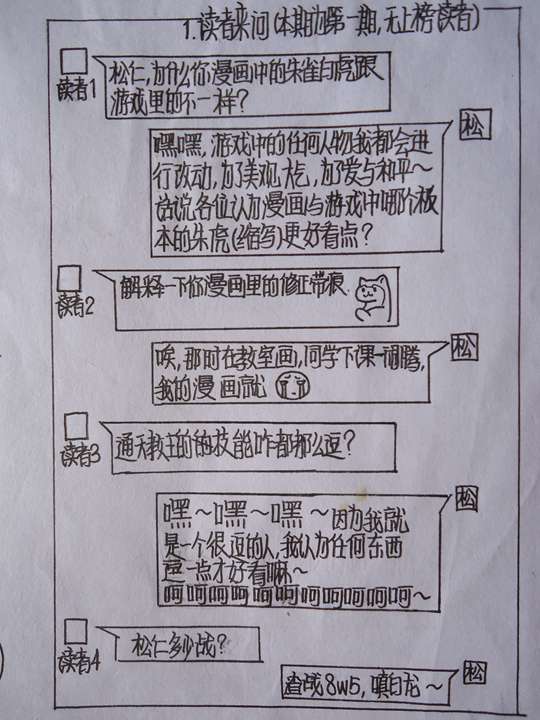 1.读者来问(本期为第一期,无上榜读者)
读者1
松仁,为什么你漫画中的朱雀白虎跟
游戏里的不一样?
松
嘿嘿,游戏中的任何人物我都会进
行改动,为了美观大气,为了爱与和平~
话说各位认为漫画与游戏中哪个版
本的朱虎(缩写)更好看点?
读者2
解释一下你漫画里的修正带痕.
松
唉,那时在教室画,同学下课一闹腾,
我的漫画就
读者3
通天教主的的技能咋都那么逗?
松
嘿~嘿~嘿~因为我就
是一个很逗的人,我认为任何东西
逗一点才好看嘛~
呵呵呵呵呵呵呵呵呵呵呵~
读者4
松仁多少战?
松
渣战8w5,嗔白龙~